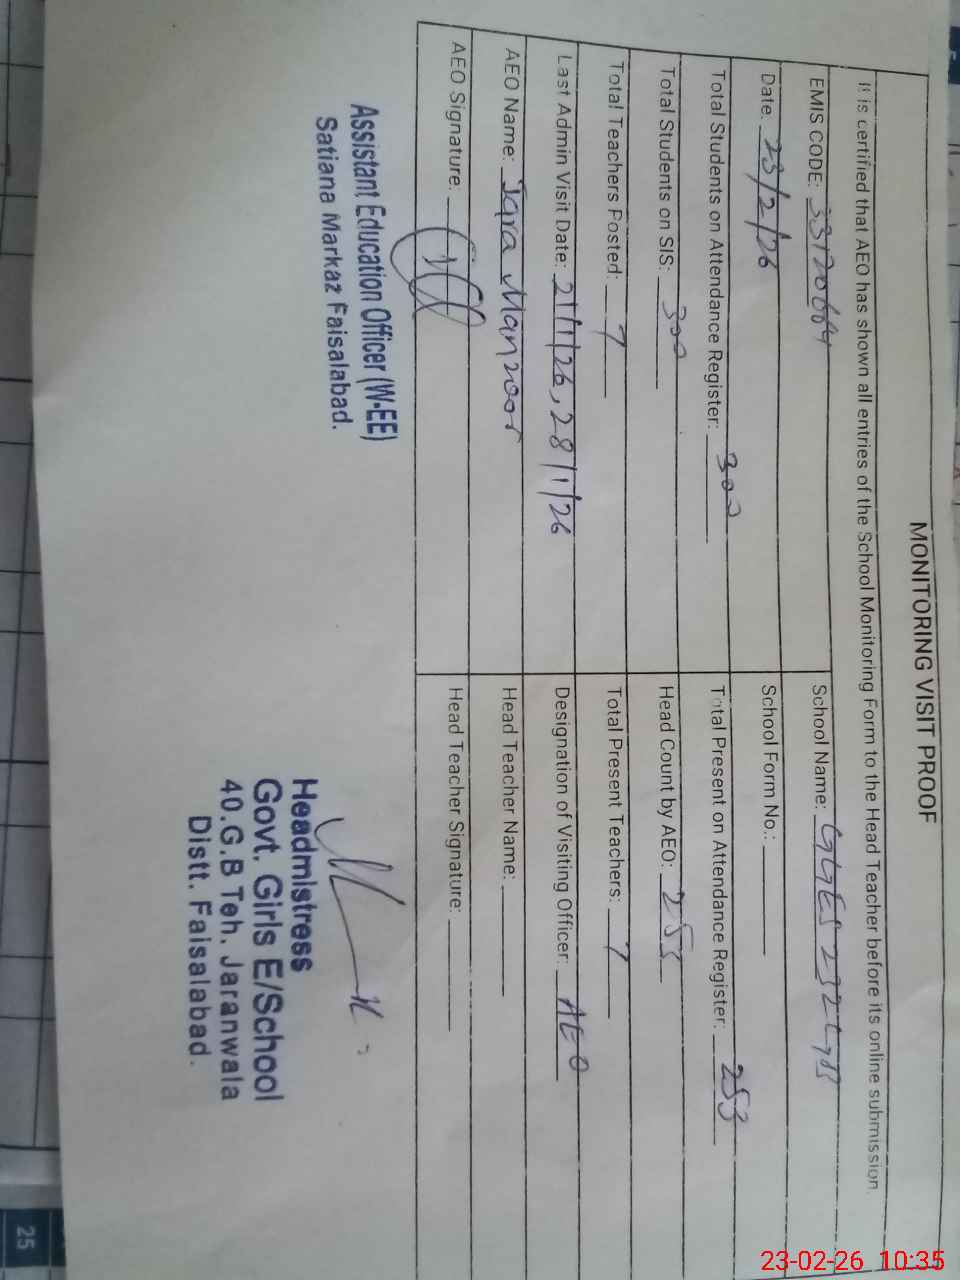 MONITORING VISIT PROOF
It is certified that AEO has shown all entries of the School Monitoring Form to the Head Teacher before its online submission.
EMIS CODE: 33120664 School Name: GGES 232 GB
Date: 23/2/26 School Form No.:
Total Students on Attendance Register: 300 Total Present on Attendance Register: 253
Total Students on SIS: 300 Head Count by AEO: 253
Total Teachers Posted: 7 Total Present Teachers: 7
Last Admin Visit Date: 21/1/26, 28/1/26 Designation of Visiting Officer: AEO
AEO Name: Iqra Manzoor Head Teacher Name:
AEO Signature: Head Teacher Signature:
Assistant Education Officer (W-EE)
Satiana Markaz Faisalabad.
Headmistress
Govt. Girls E/School
40.G.B Teh. Jaranwala
Distt. Faisalabad.
25
23-02-26 10:35